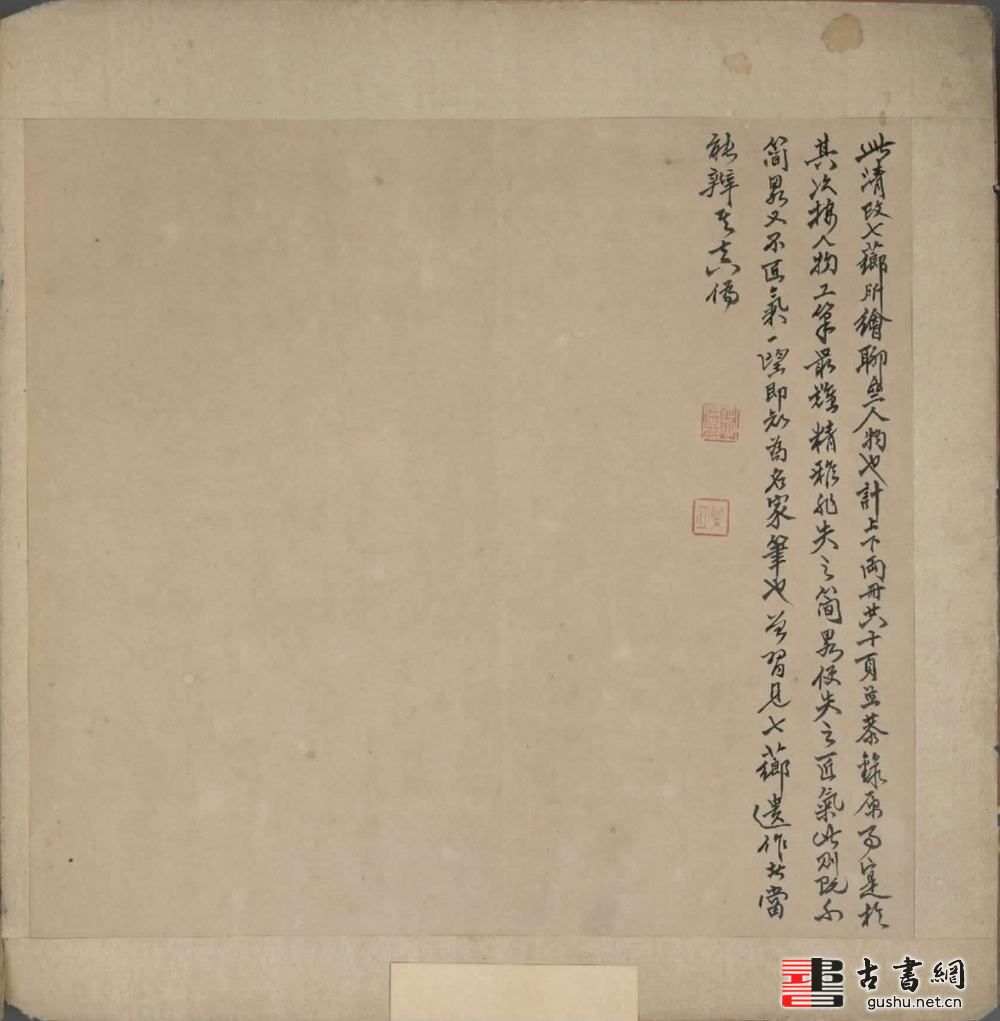 此清改七薌所繪聊齋人物也計上下兩冊共十頁並恭錄原事寔於
其次按人物工筆最難精雅非失之簡畧便失之匠氣此則既不
簡畧又不匠氣一望即知爲名家筆也曾習見七薌遺作者當
能辨其真僞
古書網
gushu.net.cn